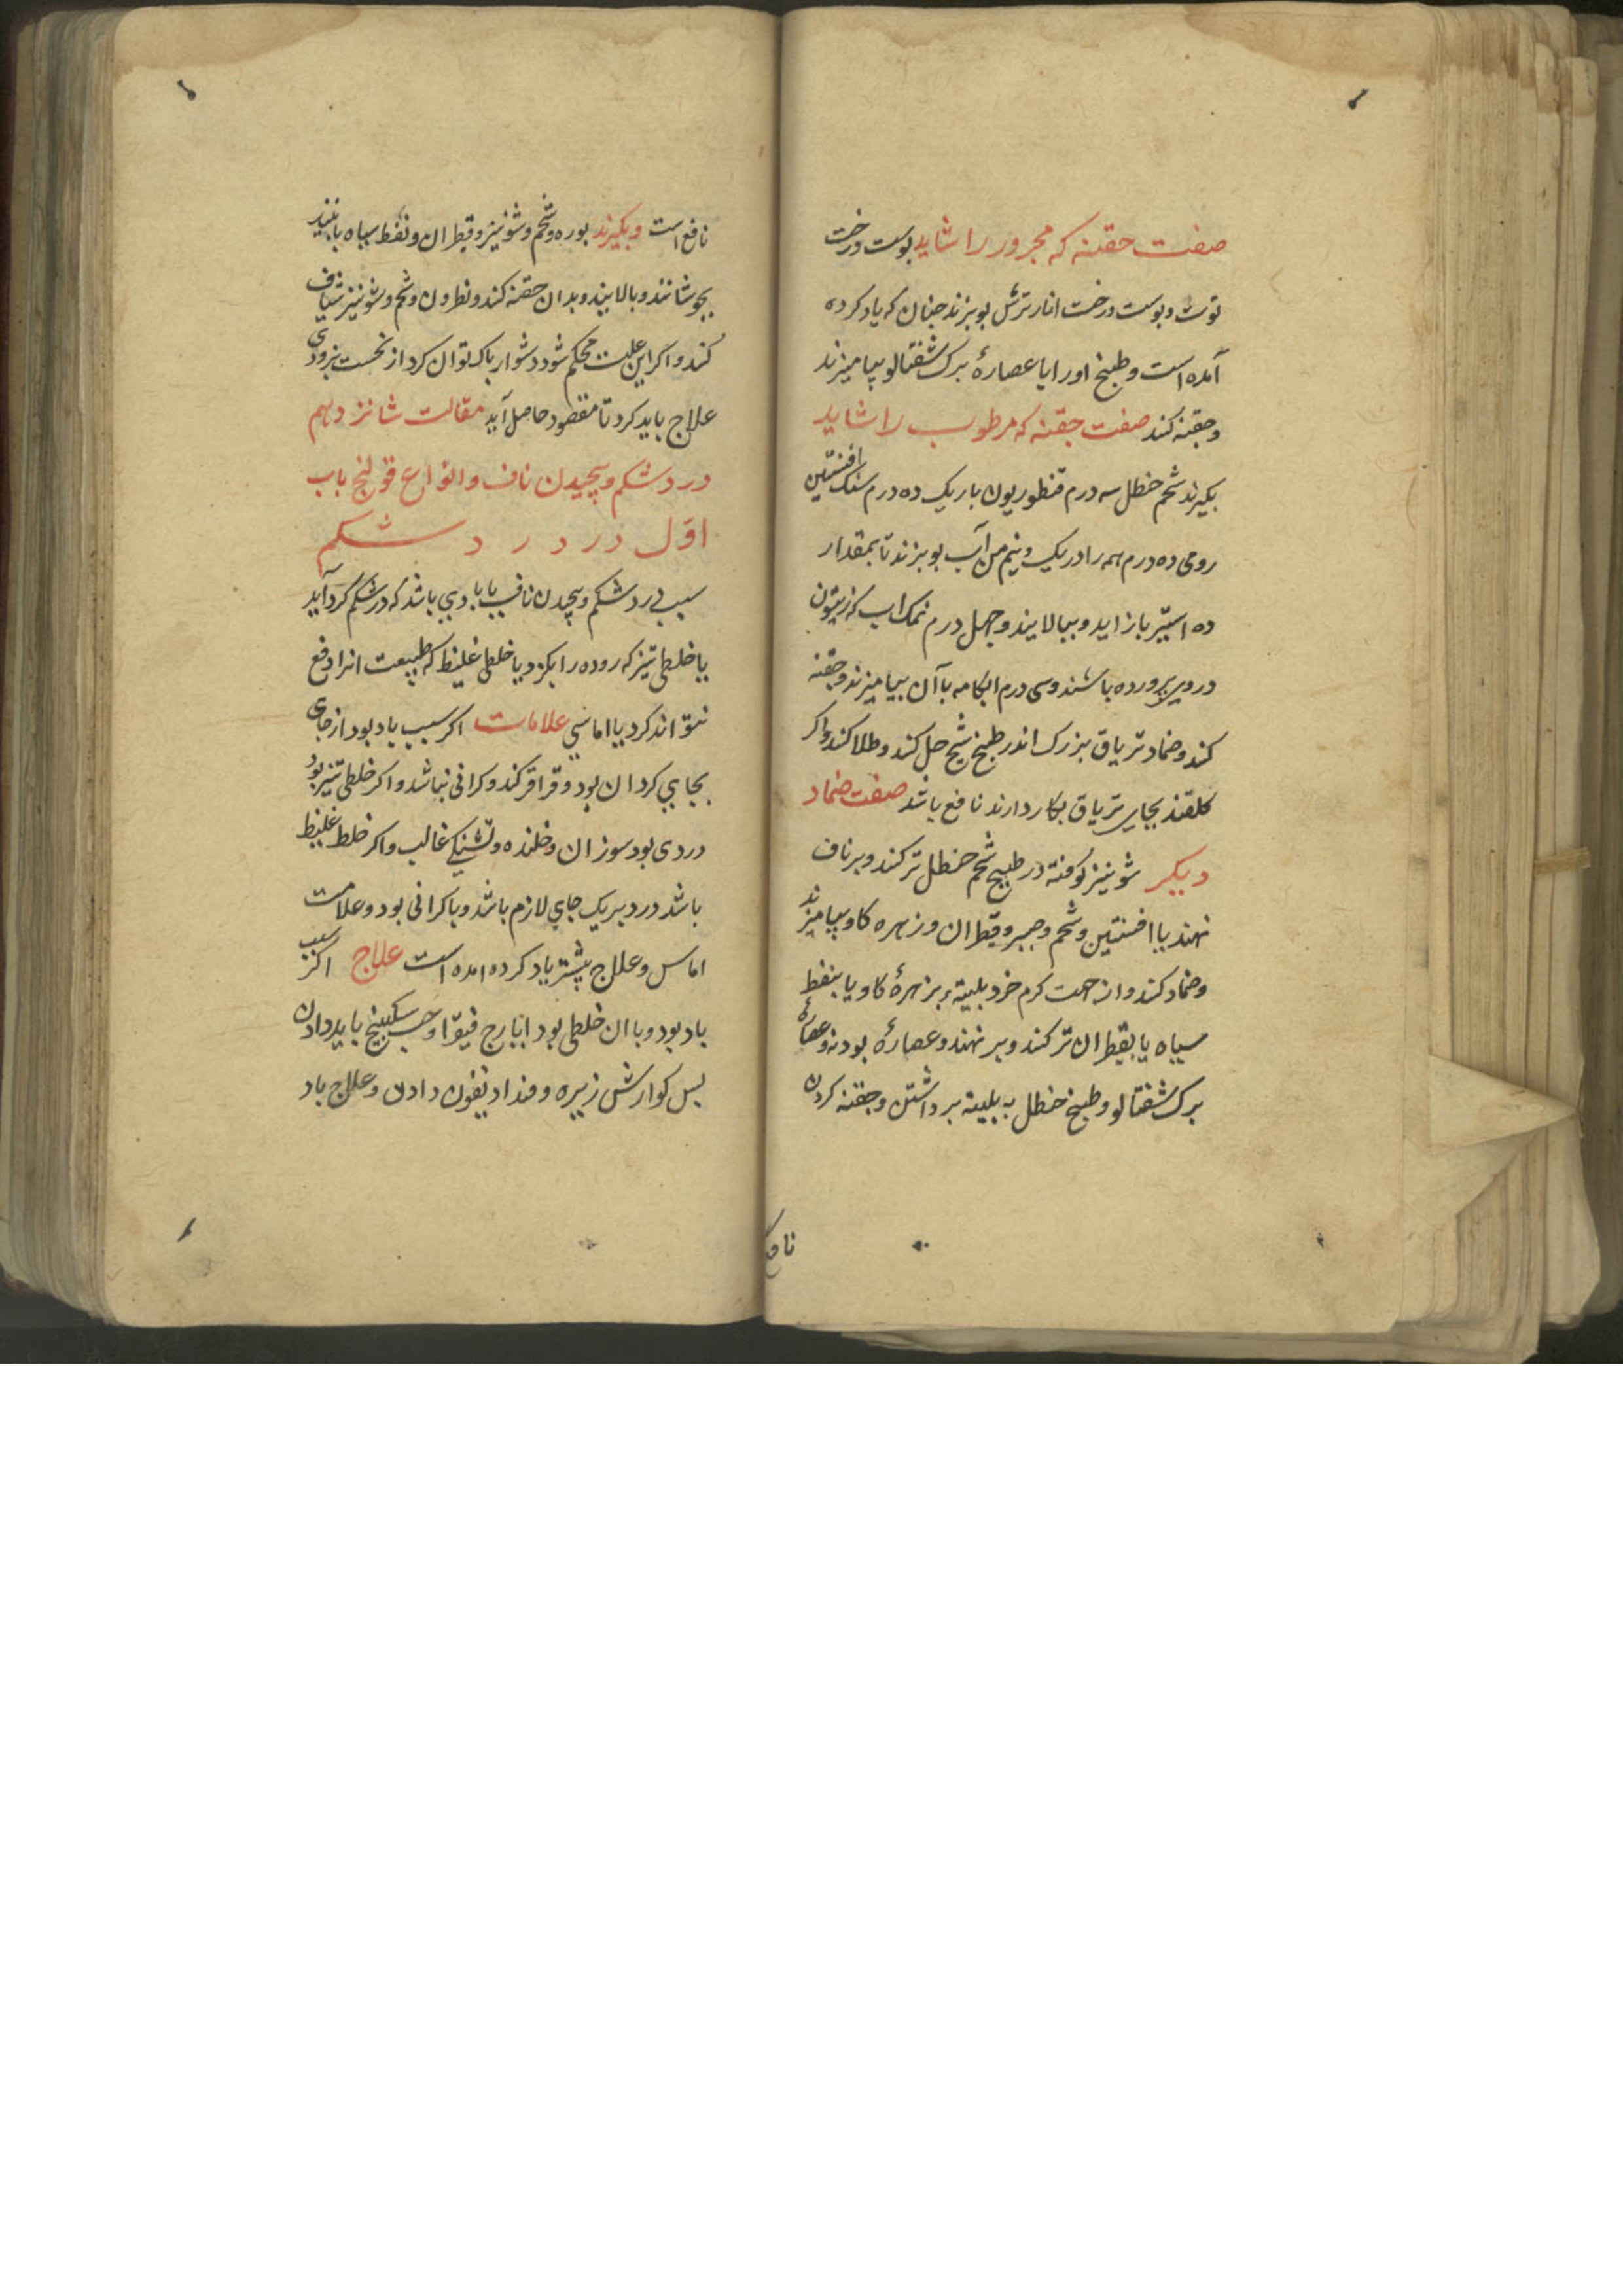 صفت حقنه که محرور را شاید بوست درخت
توث و بوست درخت انار ترش بوبزند جنان که یاد کرده
آمده است و طبیخ او را با عصارهٔ برک شفتالو بیامیزند
و حقنه کند صفت حقنه که مرطوب را شاید
بکیرند شحم حنظل سه درم قنطوریون باریک ده درم سنک افسنتین
رومی ده درم همه را در یک و نیم من آب بوبزند تا بمقدار
ده استیر باز اید و ببالایند و جهل درم نمک اب که زیتون
در وی برورده باشند و سی درم ابکامه با آن بیامیزند و حقنه
کند و ضماد تریاق بزرک اندر طبیخ شیح حل کند و طلا کند و اکر
کلقند بجای تریاق بکار دارند نافع باشد صفت ضماد
دیکر شونیز کوفته در طبیخ شحم حنظل تر کند و بر ناف
نهند یا افسنتین و شحم و صبر و قطران و زهره کاو بیامیزند
و ضماد کند و از جهت کرم خرد بلیته بزهرهٔ کاو یا بنفط
سیاه یا بقطران تر کنند و بر نهند و عصارهٔ بودنه و عصارهٔ
برک شفتالو و طبیخ حنظل به بلیته برداشتن و حقنه کردن
نافع
نافع است و بکیرند بوره و شحم و شونیز و قطران و نفط سیاه با نبیذ
بجوشانند و بالایند و بدان حقنه کند و نطرون و شحم و شونیز شیاف
کند و اکر این علت محکم شود دشوار باک توان کرد از نخست بزودی
علاج باید کرد تا مقصود حاصل آید مقالت شانزدهم
درد شکم و بیجیدن ناف و انواع قولنج باب
اول در درد شکم
سبب درد شکم و بیجیدن ناف یا بادی باشد که در شکم کرد آید
یا خلطی تیز که روده را بکزد یا خلطی غلیظ که طبیعت انرا دفع
نتواند کرد یا اماسی علامات اکر سبب باد بود از جای
بجای کردان بود و قراقر کند و کرانی نباشد و اکر خلطی تیز بود
دردی بود سوزان و خلنده و تشنکی غالب و اکر خلط غلیظ
باشد درد بریک جای لازم باشد و با کرانی بود و علامت
اماس و علاج بیشتر یاد کرده امده است علاج اکر سبب
باد بود و با ان خلطی بود ایارج فیقرا و حب سکبینج باید دادن
بس کوارش زیره و فندادیقون دادن و علاج باد